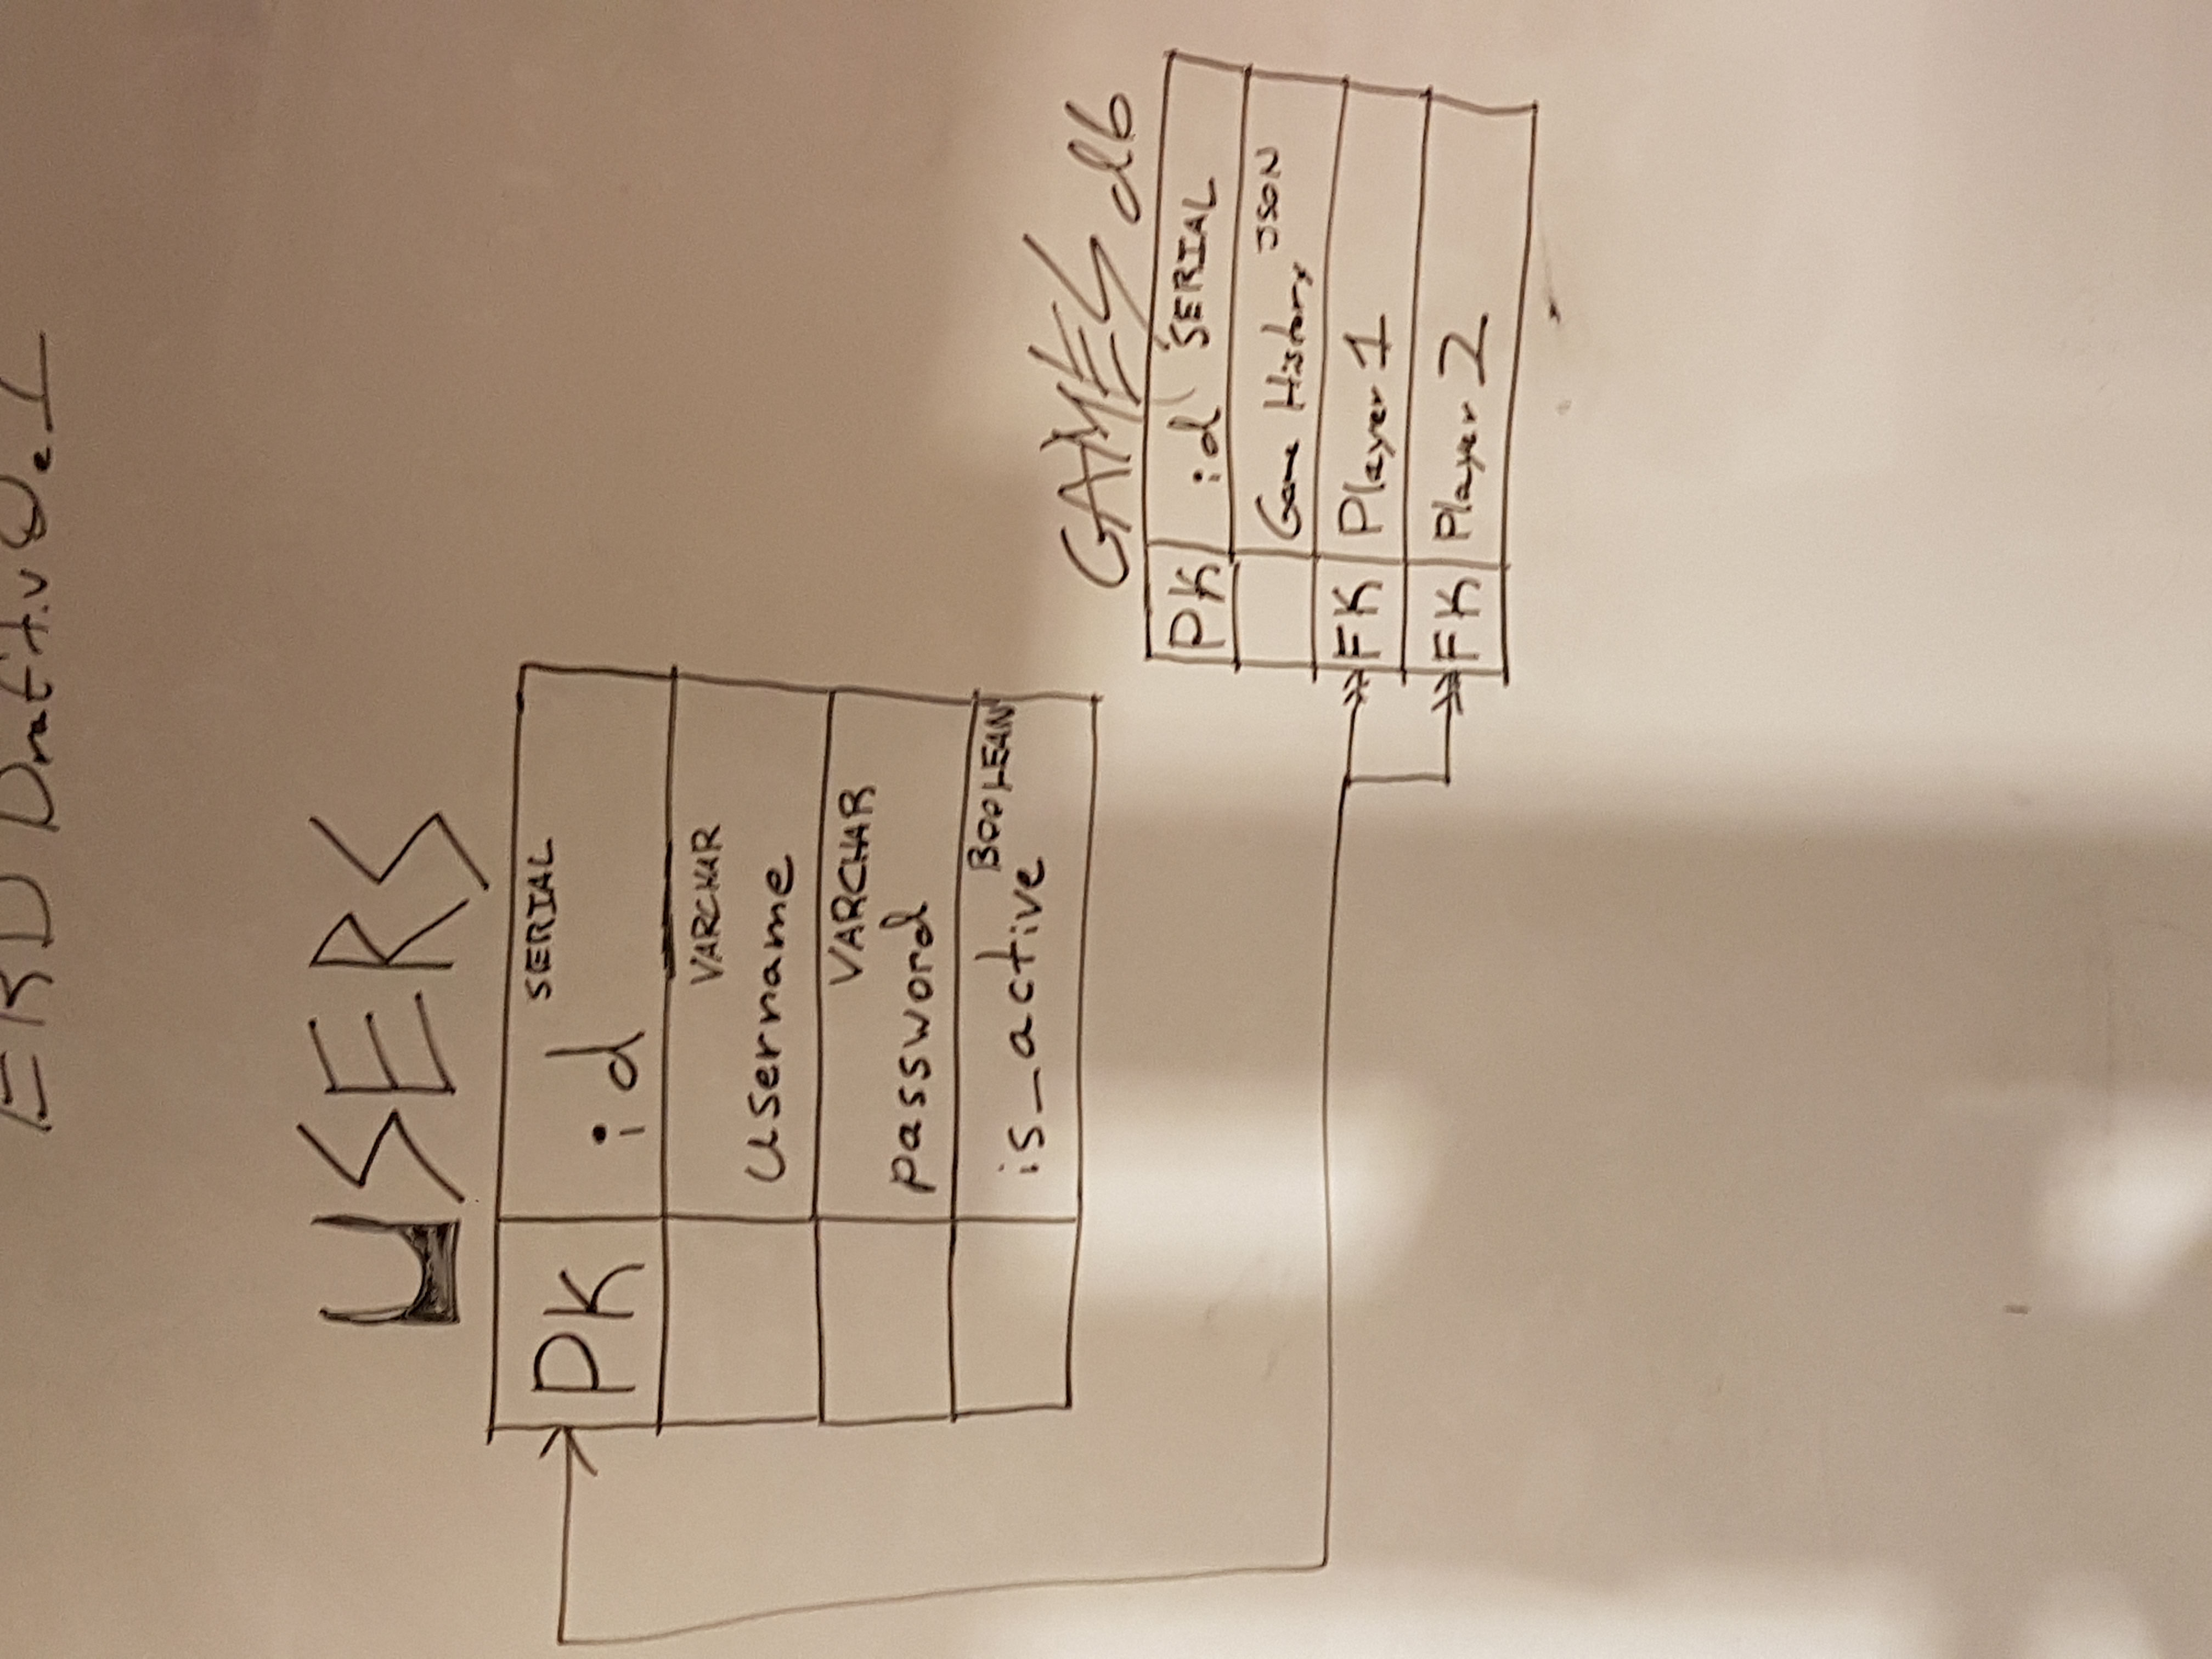 ERD Draft.v0.1
USERS
PK id SERIAL
username VARCHAR
password VARCHAR
is_active BOOLEAN
GAMES db
PK id SERIAL
Game History JSON
FK Player 1
FK Player 2